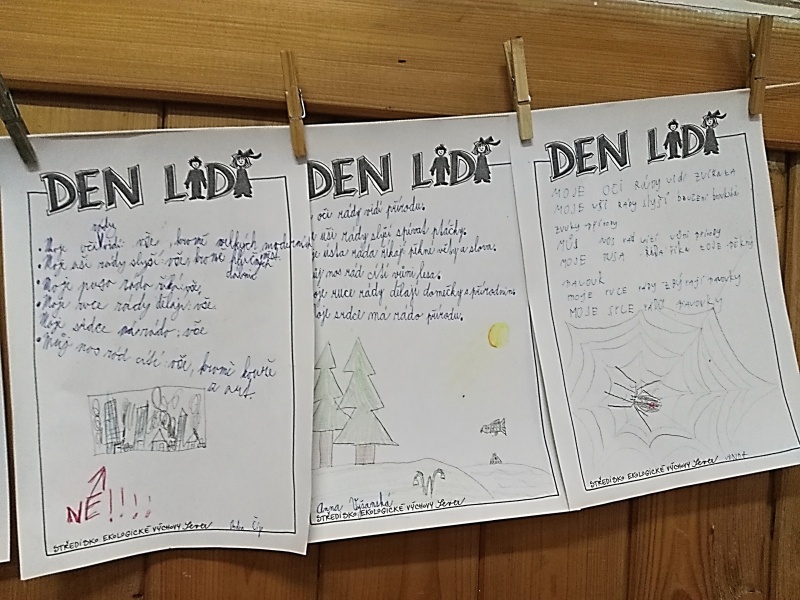 DEN LIDÍ
rády
• Moje oči vidí: vše, kromě velkých moderních
měst.
• Moje uši rády slyší: vše, kromě
• Moje pusa ráda říká: vše.
• Moje ruce rády dělají: vše.
Moje srdce má rádo: vše
• Můj nos rád cítí: vše, kromě kouře
a aut.
NE!!!!
STŘEDISKO EKOLOGICKÉ VÝCHOVY Sever
DEN LIDÍ
oči rády vidí přírodu.
uši rády slyší zpívat ptáčky.
ústa ráda říkají pěkné věty a slova.
nos rád cítí vůni lesa.
ruce rády dělají domečky s přírodnin.
srdce má rádo přírodu.
Anna
STŘEDISKO EKOLOGICKÉ VÝCHOVY Sever
DEN LIDÍ
MOJE OČI RÁDY VIDÍ ZVÍŘATA
MOJE UŠI RÁDY SLYŠÍ
ZVUKY PŘÍRODY
MŮJ NOS RÁD CÍTÍ VŮNI PŘÍRODY
MOJE PUSA RÁDA ŘÍKÁ
PAVOUK
MOJE RUCE RÁDY PAVOUKY
MOJE SRDCE PAVOUKY
STŘEDISKO EKOLOGICKÉ VÝCHOVY Sever